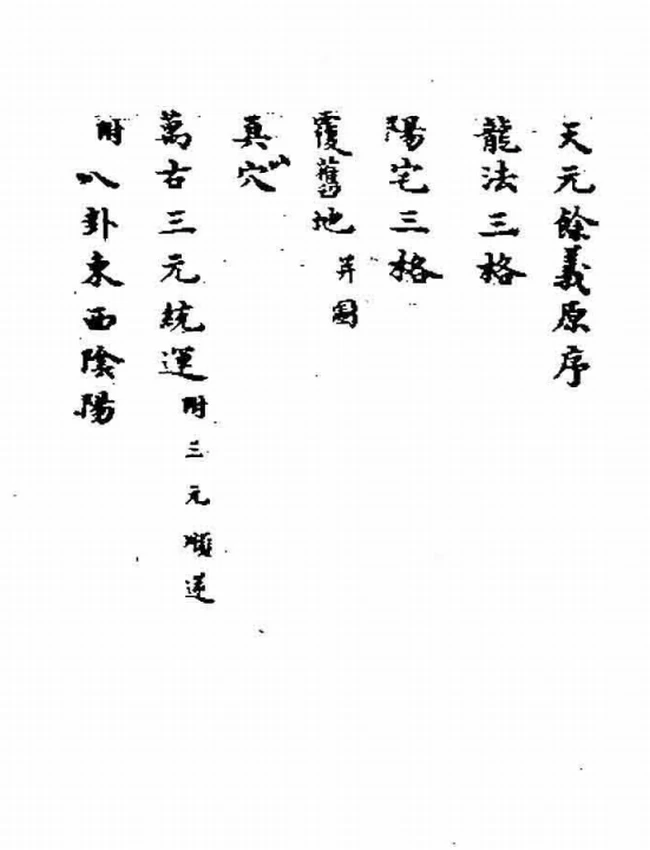 天元餘義原序
龍法三格
陽宅三格
覆舊地 并圖
真穴
萬古三元統運 附三元順逆
附八卦東西陰陽